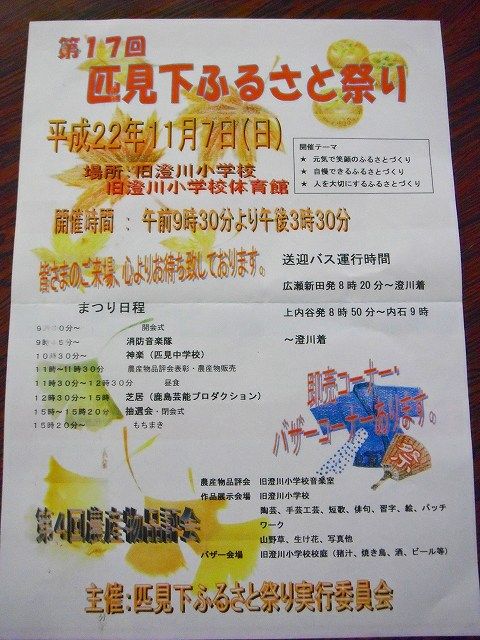 第17回
匹見下ふるさと祭り
平成22年11月7日(日)
場所:旧澄川小学校
旧澄川小学校体育館
開催テーマ
★ 元気で笑顔のふるさとづくり
★ 自慢できるふるさとづくり
★ 人を大切にするふるさとづくり
開催時間 : 午前9時30分より午後3時30分
皆さまのご来場、心よりお待ち致しております。
送迎バス運行時間
広瀬新田発8時20分～澄川着
上内谷発8時50分～内石9時
～澄川着
まつり日程
開会式
消防音楽隊
10時30分～ 神楽(匹見中学校)
11時～11時30分 農産物品評会表彰・農産物販売
11時30分～12時30分 昼食
12時30分～15時 芝居(鹿島芸能プロダクション)
15時～15時20分 抽選会・閉会式
15時20分～ もちまき
即売コーナー・
バザーコーナーあります。
祭
農産物品評会 旧澄川小学校音楽室
作品展示会場 旧澄川小学校
陶芸、手芸工芸、短歌、俳句、習字、絵、パッチ
ワーク
山野草、生け花、写真他
バザー会場 旧澄川小学校校庭(猪汁、焼き鳥、酒、ビール等)
第4回農産物品評会
主催:匹見下ふるさと祭り実行委員会